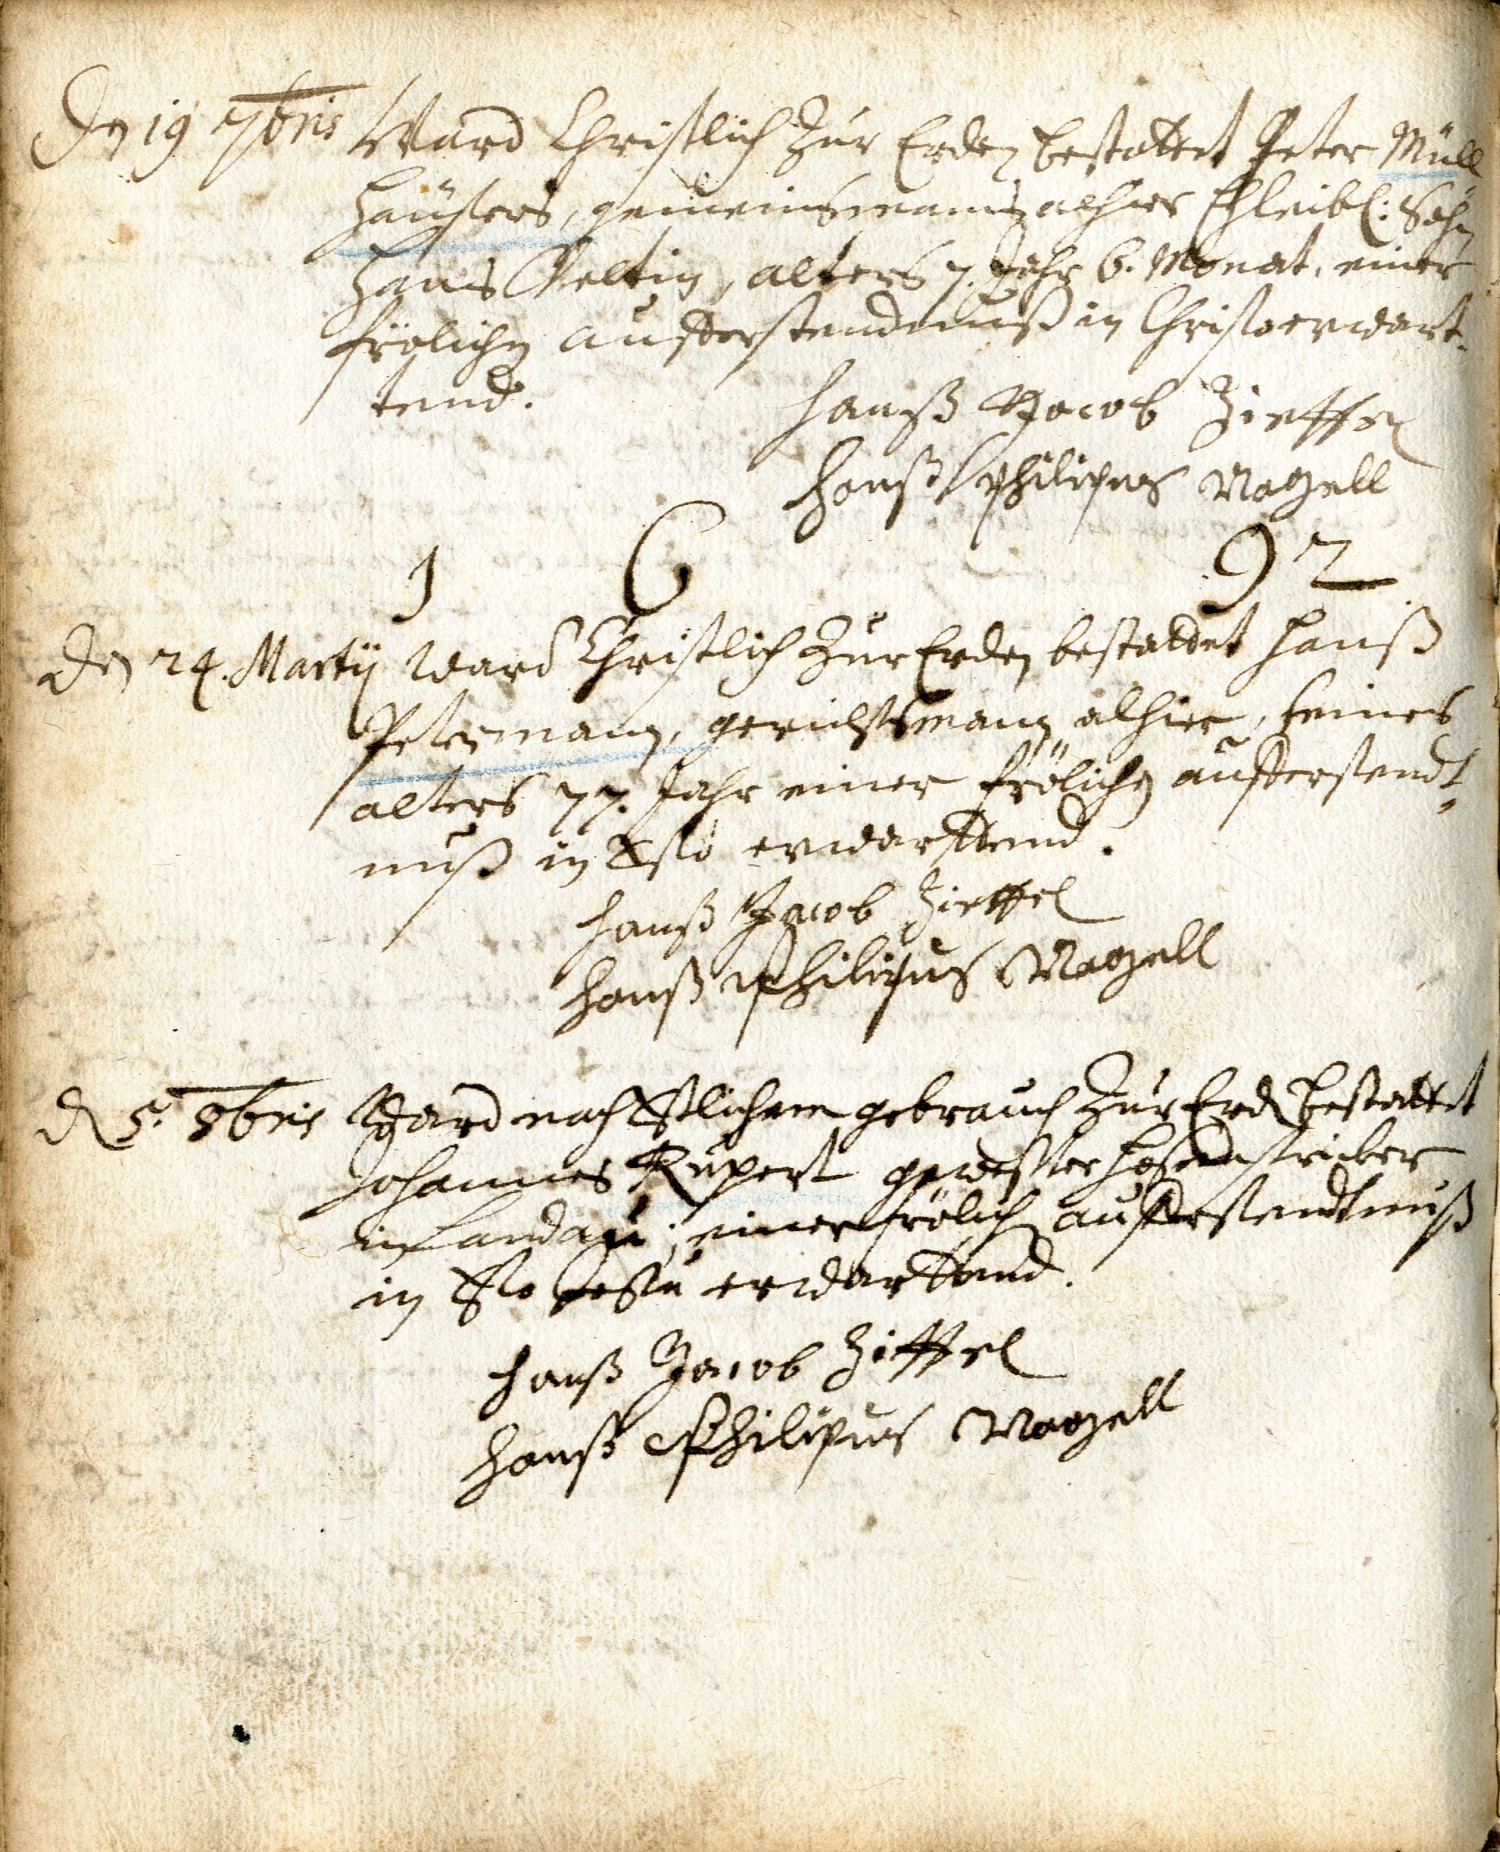 Den 19 7bris Ward Christlich zur Erden bestattet Peter Müll
häusers, gemeinsmanns alhier Ehleibl: Sohn
Hans Veltin, alters 7. Jahr 6. Monat, einer
frölichen aufferstendnuß in Christo erwart-
tend.
Hanß Jacob Zieffel
Hanß Philipus Nagell
1 6 92
Den 24. Martij Ward Christlich zur Erden bestattet Hanß
Petermann, gerichtsmann alhier, seines
alters 77. Jahr einer frölichen aufferstendt=
nuß in Xsto erwarttend.
Hanß Jacob Zieffel
Hanß Philipus Nagell
D 5. 8bris Ward nach Xstlichem gebrauch zur Erd bestattet
Johannes Rupert gewester hosenstricker
in Landau, einer frölich aufferstendtnuß
in Xsto Jesu erwarttend.
Hanß Jacob Zieffel
Hanß Philipus Nagell